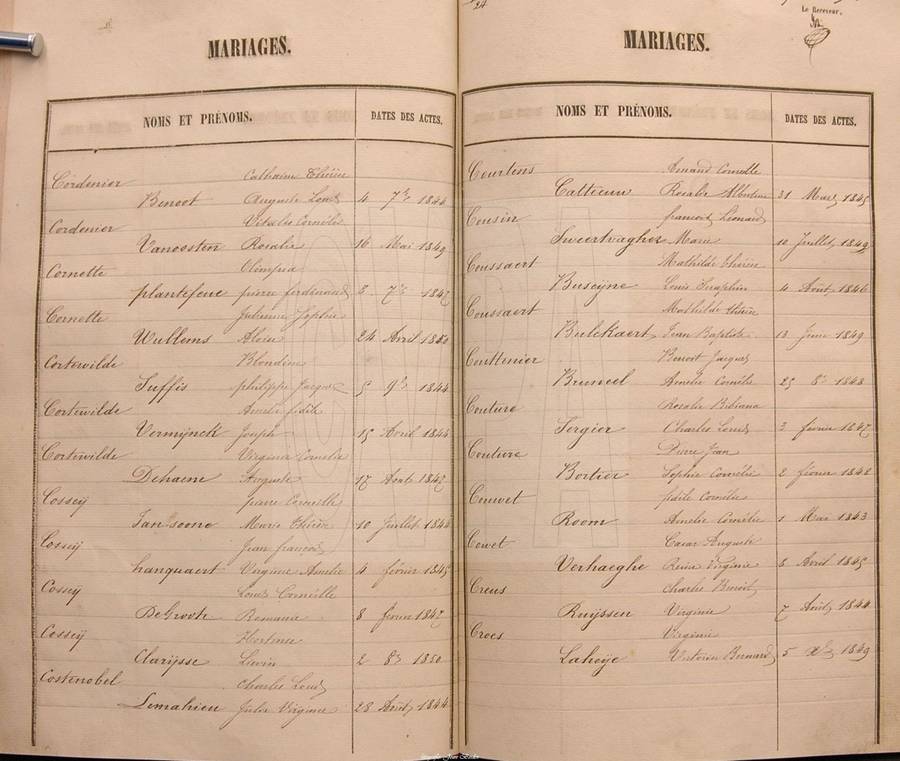 24
Le Receveur,
MARIAGES.
NOMS ET PRÉNOMS. DATES DES ACTES.
Cordenier Cathérine Thérèse
Benoot Auguste Louis 4 7bre 1844
Cordenier Vitalie Cornélie
Vanoosten Rosalie 16 Mai 1849
Cornette Olimpia
plantefeve pierre ferdinand 3 7bre 1847
Cornette Julienne Sophie
Wullems Aloïs 24 Avril 1850
Cortewilde Blondine
Suffis philippe Jacques 5 9bre 1844
Cortewilde Amelie fidèle
Vermynck Joseph 15 Avril 1844
Cortewilde Virginie Cornelie
Dehaene Auguste 17 Août 1847
Cossey pierre Corneille
Jansoone Marie Thérèse 10 Juillet 1844
Cossey Jean francois
hanquaert Virginie Amelie 4 février 1845
Cossey Louis Corneille
DeGroote Romana 8 février 1847
Cossey Hortense
Clarysse Livin 2 8bre 1850
Costenobel Charles Louis
Lemahieu Julie Virginie 28 Août 1844
MARIAGES.
NOMS ET PRÉNOMS. DATES DES ACTES.
Courtens Amand Corneille
Catteeuw Rosalie Albertine 31 Mars 1845
Cousin francois Léonard
Sweertvaegher Marie 10 Juillet 1849
Coussaert Mathilde thérèse
Buseyne Louis Seraphin 4 Août 1846
Coussaert Mathilde thérèse
Bulckaert Jean Baptiste 13 Juin 1849
Couttenier Benoit Jacques
Bruneel Amelie Cornélie 25 8bre 1848
Couture Rosalie Bibiana
Tergier Charles Louis 3 février 1847
Couture Pierre Jean
Bortier Sophie Cornélie 2 février 1842
Couvet fidèle Cornelis
Room Amelie Cornélie 1 Mai 1843
Cowet Cæsar Auguste
Verhaeghe Reine Virginie 8 Avril 1845
Creus Charles Benoit
Ruyssen Virginie 7 Août 1844
Croes Virginie
Laheye Victorin Bernard 5 Xbre 1849